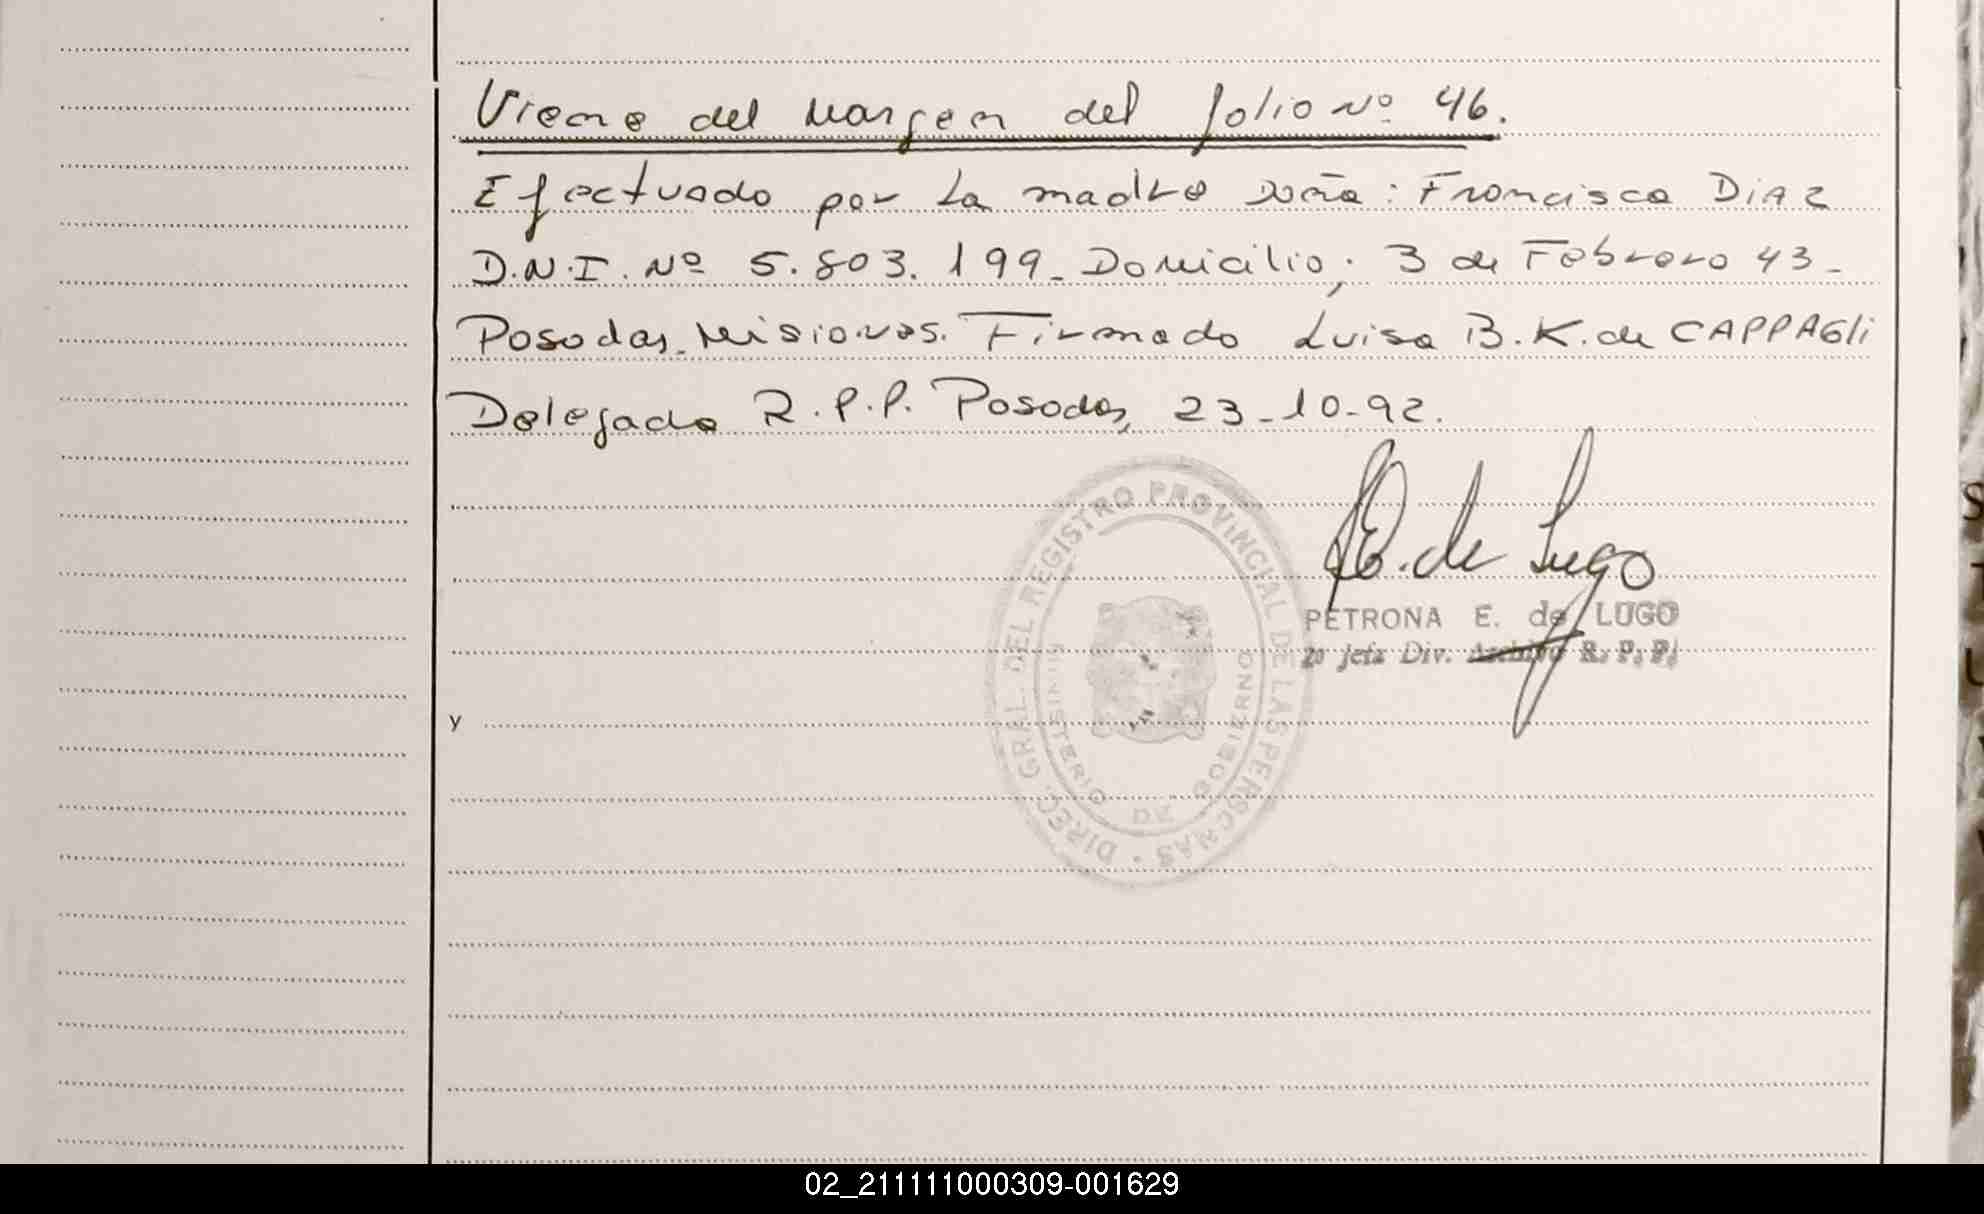 Viene del Margen del folio Nº 46.
Efectuado por La madre doña: Francisca DIAZ
D.N.I. Nº 5.803.199_ Domicilio; 3 de Febrero 43_
Posadas_Misiones. Firmado Luisa B.K. de CAPPAGli
Delegada R.P.P. Posadas, 23_10_92.
P.E. de Lugo
PETRONA E. de LUGO
2º Jefa Div. Archivo R. P. P.
DIREC. GRAL. DEL REGISTRO PROVINCIAL DE LAS PERSONAS
MINISTERIO DE GOBIERNO
y
02_211111000309-001629